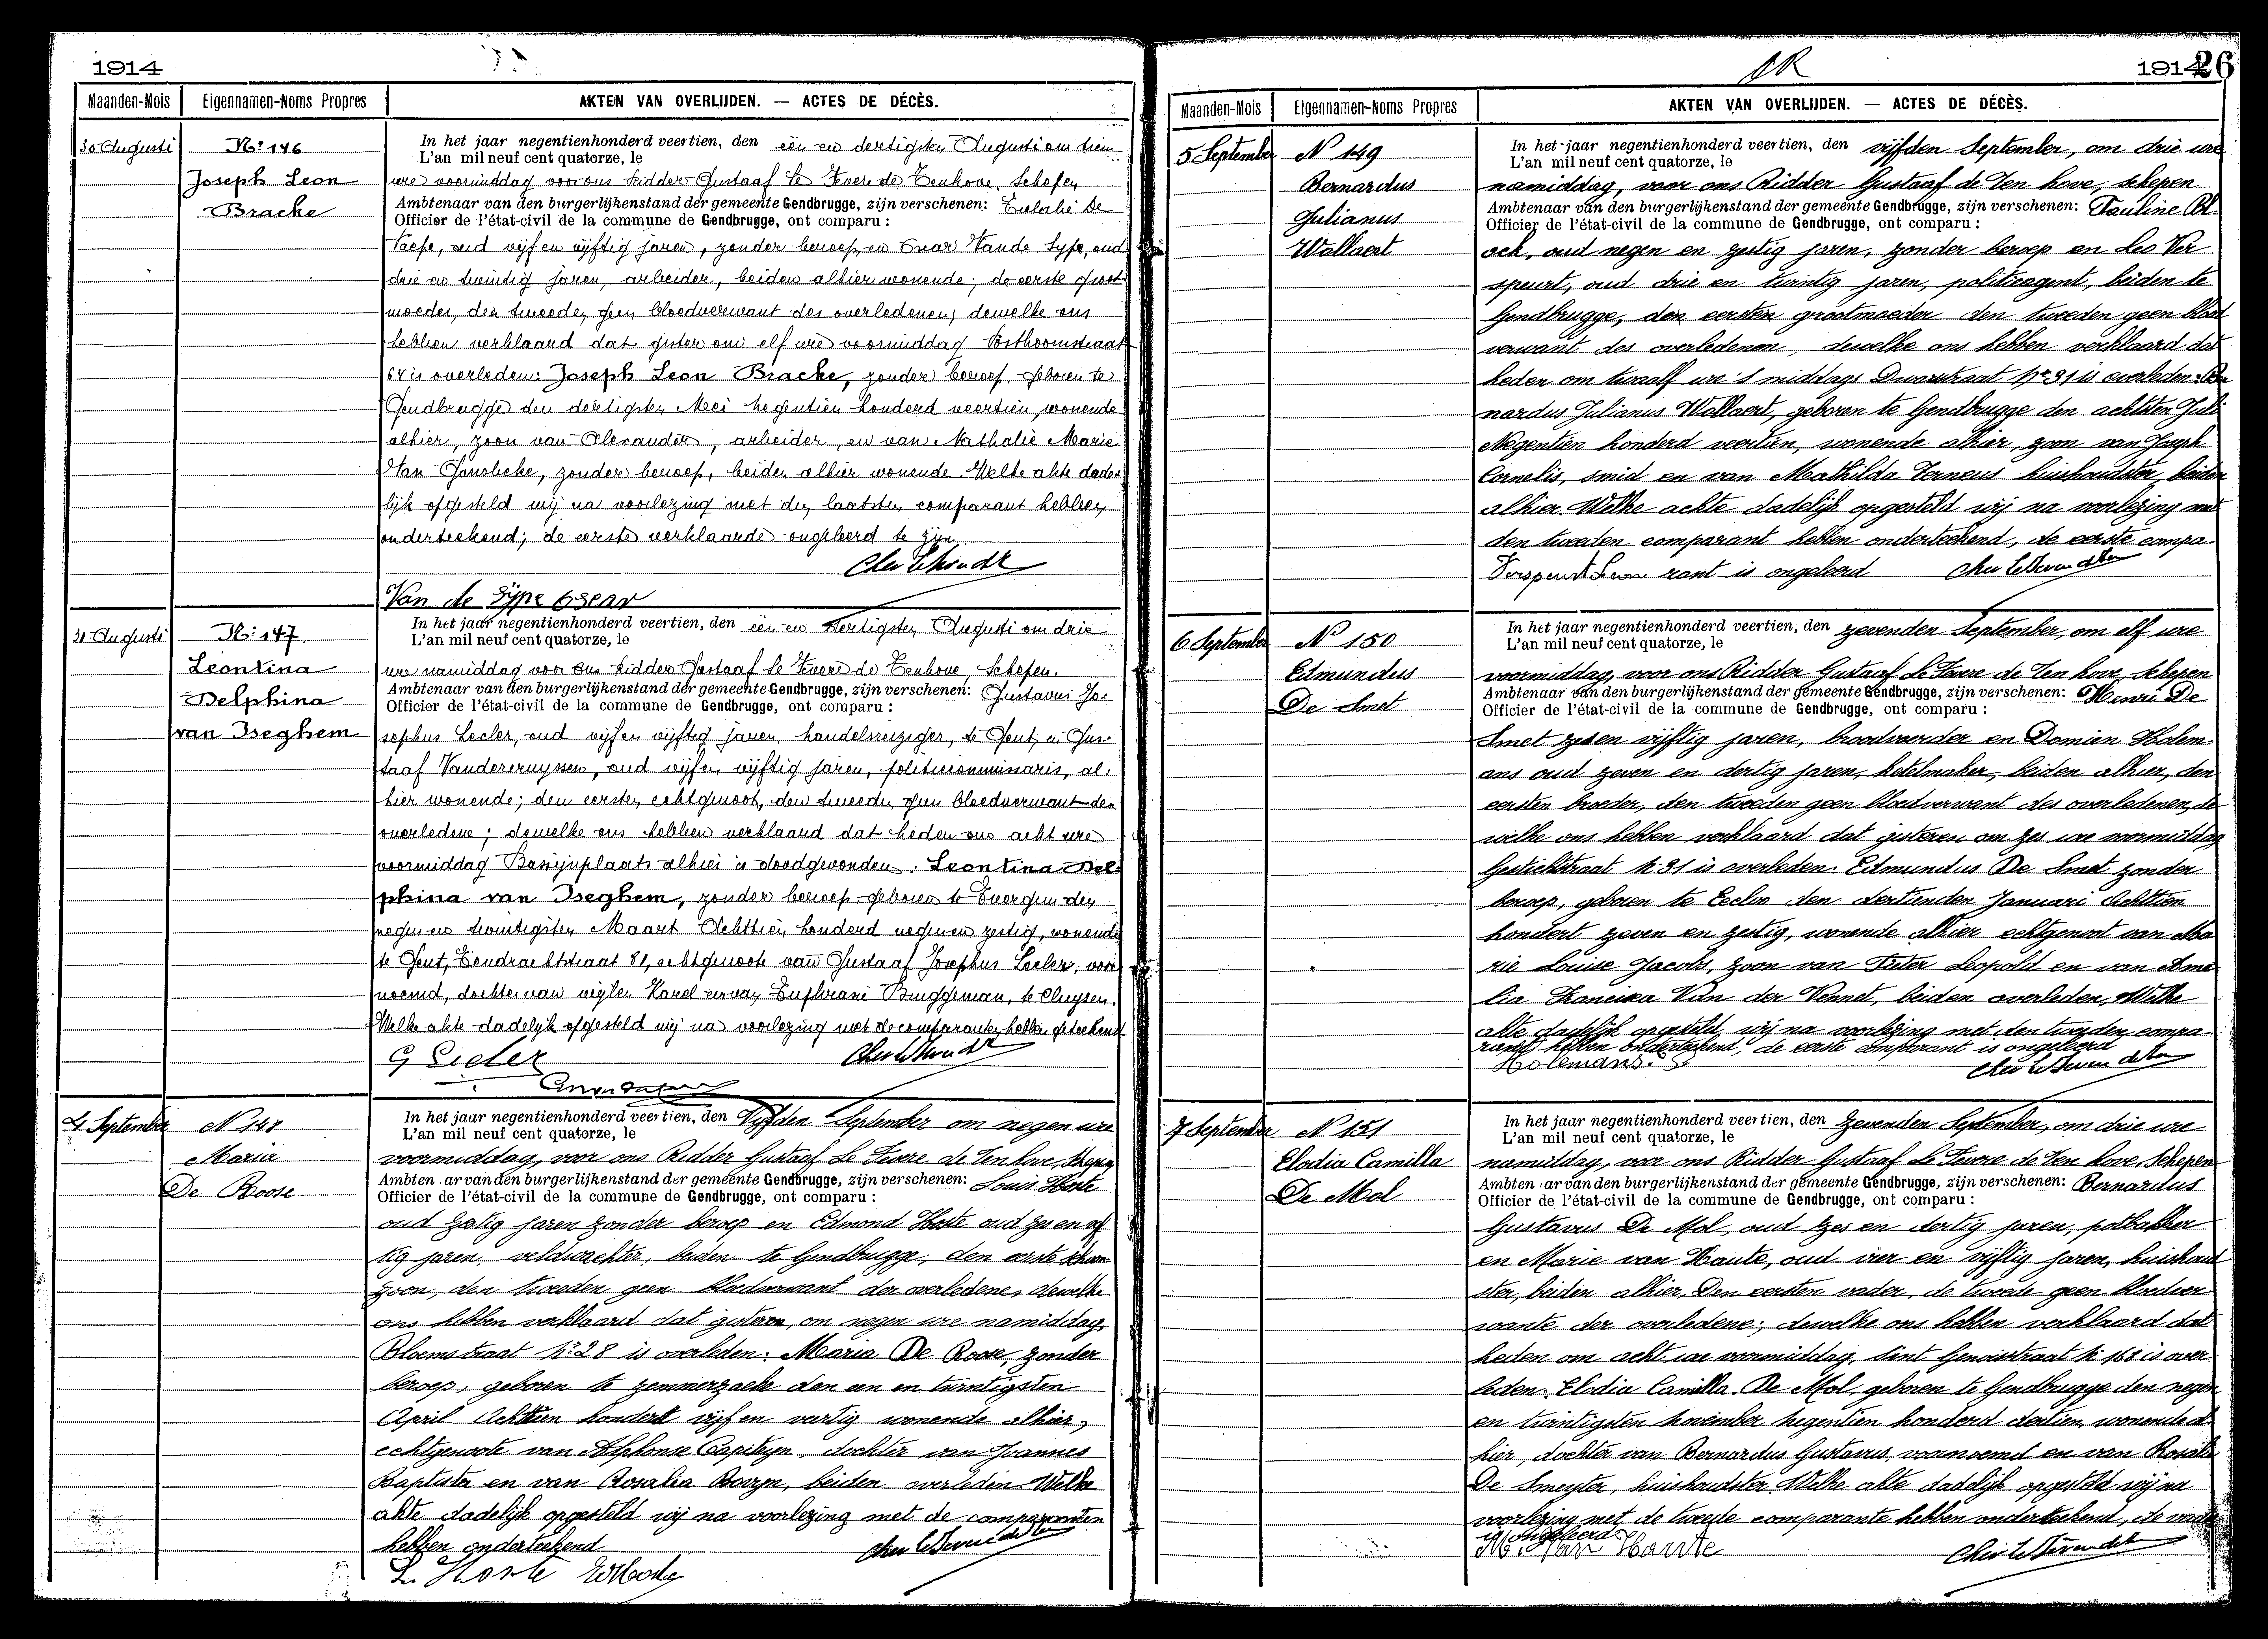 1914
Maanden-Mois Eigennamen-Noms Propres AKTEN VAN OVERLIJDEN. — ACTES DE DÉCÈS.
30 Augusti
N.º 146
Joseph Leon
Bracke
In het jaar negentienhonderd veertien, den een en dertigsten Augusti om tien
L'an mil neuf cent quatorze, le
ure voormiddag voor ons Ridder Gustaaf Le Fevere de Tenhove, Schepen
Ambtenaar van den burgerlijkenstand der gemeente Gendbrugge, zijn verschenen: Eulalie De
Officier de l'état-civil de la commune de Gendbrugge, ont comparu :
oud vijf en vijftig jaren, zonder beroep, en Oscar Vande Sype, oud
drie en twintig jaren, arbeider, beiden alhier wonende; de eerste groot
moeder, den tweeden geen bloedverwant des overledenen; dewelke ons
hebben verklaard dat gister om elf ure voormiddag Posthoornstraat
64 is overleden: Joseph Leon Bracke, zonder beroep, geboren te
Gendbrugge den dertigsten Mei negentien honderd veertien, wonende
alhier, zoon van Alexander, arbeider, en van Nathalie Marie
Van Gansbeke, zonder beroep, beiden alhier wonende. Welke akte dade-
lijk opgesteld wij na voorlezing met den laatsten comparant hebben
onderteekend; de eerste verklaarde ongeleerd te zijn.
Van de Sype Oscar
31 Augusti
N.º 147
Leontina
Delphina
van Iseghem
In het jaar negentienhonderd veertien, den een en dertigsten Augusti om drie
L'an mil neuf cent quatorze, le
ure namiddag voor ons Ridder Gustaaf Le Fevere de Tenhove, Schepen.
Ambtenaar van den burgerlijkenstand der gemeente Gendbrugge, zijn verschenen: Gustavus Jo-
Officier de l'état-civil de la commune de Gendbrugge, ont comparu :
sephus Lecler, oud vijf en vijftig jaren, handelsreiziger, te Gent, en Gus-
taaf Vandercruyssen, oud vijf en vijftig jaren, politiecommissaris, al-
hier wonende; den eersten echtgenoot, den tweeden geen bloedverwant der
overledene; dewelke ons hebben verklaard dat heden om acht ure
voormiddag alhier is doodgevonden: Leontina Del-
phina van Iseghem, zonder beroep, geboren te Evergem den
negen en twintigsten Maart Achttien honderd negen en zestig, wonende
te Gent, Eendrachtstraat 81, echtgenoote van Gustaaf Josephus Lecler, voor-
noemd, dochter van wijlen Karel en van Bruggeman, te Cluysen.
Welke akte dadelijk opgesteld wij na voorlezing met de comparanten hebben geteekend
G Lecler
4 September
N 148
Maria
De Roose
In het jaar negentienhonderd veertien, den Vijfden September om negen ure
L'an mil neuf cent quatorze, le
voormiddag, voor ons Ridder Gustaaf Le Fevere de Ten hove, Schepen
Ambten ar van den burgerlijkenstand der gemeente Gendbrugge, zijn verschenen: Louis Hoste
Officier de l'état-civil de la commune de Gendbrugge, ont comparu :
oud zestig jaren zonder beroep en Edmond Hoste oud zes en vijf
tig jaren, veldwachter, beiden te Gendbrugge, den eerste schoon
zoon, den tweeden geen bloedverwant der overledene, dewelke
ons hebben verklaard dat gisteren, om negen ure namiddag,
Bloemstraat Nº 28 is overleden: Maria De Roose, zonder
beroep, geboren te zemmerzaele den een en twintigsten
April Achttien honderd vijf en veertig wonende alhier,
echtgenoote van Alphonse Capiteyn, dochter van Joannes
Baptista en van Rosalia beiden overleden. Welke
akte dadelijk opgesteld wij na voorlezing met de comparanten
hebben onderteekend
L. Hoste
1914 26
Maanden-Mois Eigennamen-Noms Propres AKTEN VAN OVERLIJDEN. — ACTES DE DÉCÈS.
5 September
N 149
Bernardus
Julianus
Wallaert
In het jaar negentienhonderd veertien, den vijfden September, om drie ure
L'an mil neuf cent quatorze, le
namiddag, voor ons Ridder Gustaaf de Ten hove, schepen
Ambtenaar van den burgerlijkenstand der gemeente Gendbrugge, zijn verschenen: Pauline
Officier de l'état-civil de la commune de Gendbrugge, ont comparu :
ock, oud negen en zestig jaren, zonder beroep en Leo Ver
speurt, oud drie en twintig jaren, politieagent, beiden te
Gendbrugge, den eersten grootmoeder den tweeden geen bloed
verwant des overledenen, dewelke ons hebben verklaard dat
heden om twaalf ure 's middags Dwarsstraat Nº 31 is overleden: Ber
nardus Julianus Wallaert, geboren te Gendbrugge den achtsten Juli
Negentien honderd veertien, wonende alhier, zoon van Joseph
Cornelis, smid en van Mathilda Verneus huishoudster, beiden
alhier. Welke achte dadelijk opgesteld wij na voorlezing met
den tweeden comparant hebben onderteekend, de eerste compa-
Verspeurt Leon rant is ongeleerd
6 September
Nº 150
Edmundus
De Smet
In het jaar negentienhonderd veertien, den zevenden September, om elf ure
L'an mil neuf cent quatorze, le
voormiddag, voor ons Ridder Gustaaf Le Fevere de Ten hove, schepen
Ambtenaar van den burgerlijkenstand der gemeente Gendbrugge, zijn verschenen: Henri De
Officier de l'état-civil de la commune de Gendbrugge, ont comparu :
Smet zes en vijftig jaren, broodvoerder en Damien Holem-
ans oud zeven en dertig jaren, ketelmaker, beiden alhier, den
eersten broeder, den tweeden geen bloedverwant des overledenen, de
welke ons hebben verklaard dat gisteren om zes ure voormiddag
Gestichtstraat N. 31 is overleden: Edmundus De Smet zonder
beroep, geboren te Eecloo den dertienden Januari Achttien
hondert zeven en zestig, wonende alhier echtgenoot van Ma
rie Louise Jacobs, zoon van Pieter Leopold en van Ame
lia Francisca Van der Vennet, beiden overleden. Welke
akte dadelijk opgesteld, wij na voorlezing met den tweeden compa-
rant hebben onderteekend, de eerste comparant is ongeleerd
Holemans.
7 September
Nº 151
Elodia Camilla
De Mol
In het jaar negentienhonderd veertien, den Zevenden September, om drie ure
L'an mil neuf cent quatorze, le
namiddag, voor ons Ridder Gustaaf Le Fevere de Ten hove, Schepen
Ambten ar van den burgerlijkenstand der gemeente Gendbrugge, zijn verschenen: Bernardus
Officier de l'état-civil de la commune de Gendbrugge, ont comparu :
Gustavus De Mol, oud zes en dertig jaren, potbakker
en Marie van Haute, oud vier en vijftig jaren, huishoud
ster, beiden alhier, Den eersten vader, de tweede geen bloedver
wante der overledene; dewelke ons hebben verklaard dat
heden om acht ure voormiddag, Sint Genoisstraat N. 168 is over
leden: Elodia Camilla De Mol, geboren te Gendbrugge den negen
en twintigsten november negentien honderd dertien, wonende al-
hier, dochter van Bernardus Gustavus, voornoemd en van Rosalie
De Smeyter, huishoudster. Welke akte dadelijk opgesteld wij na
voorlezing met de tweede comparante hebben onderteekend, de vader
is ongeleerd
M. Van Haute